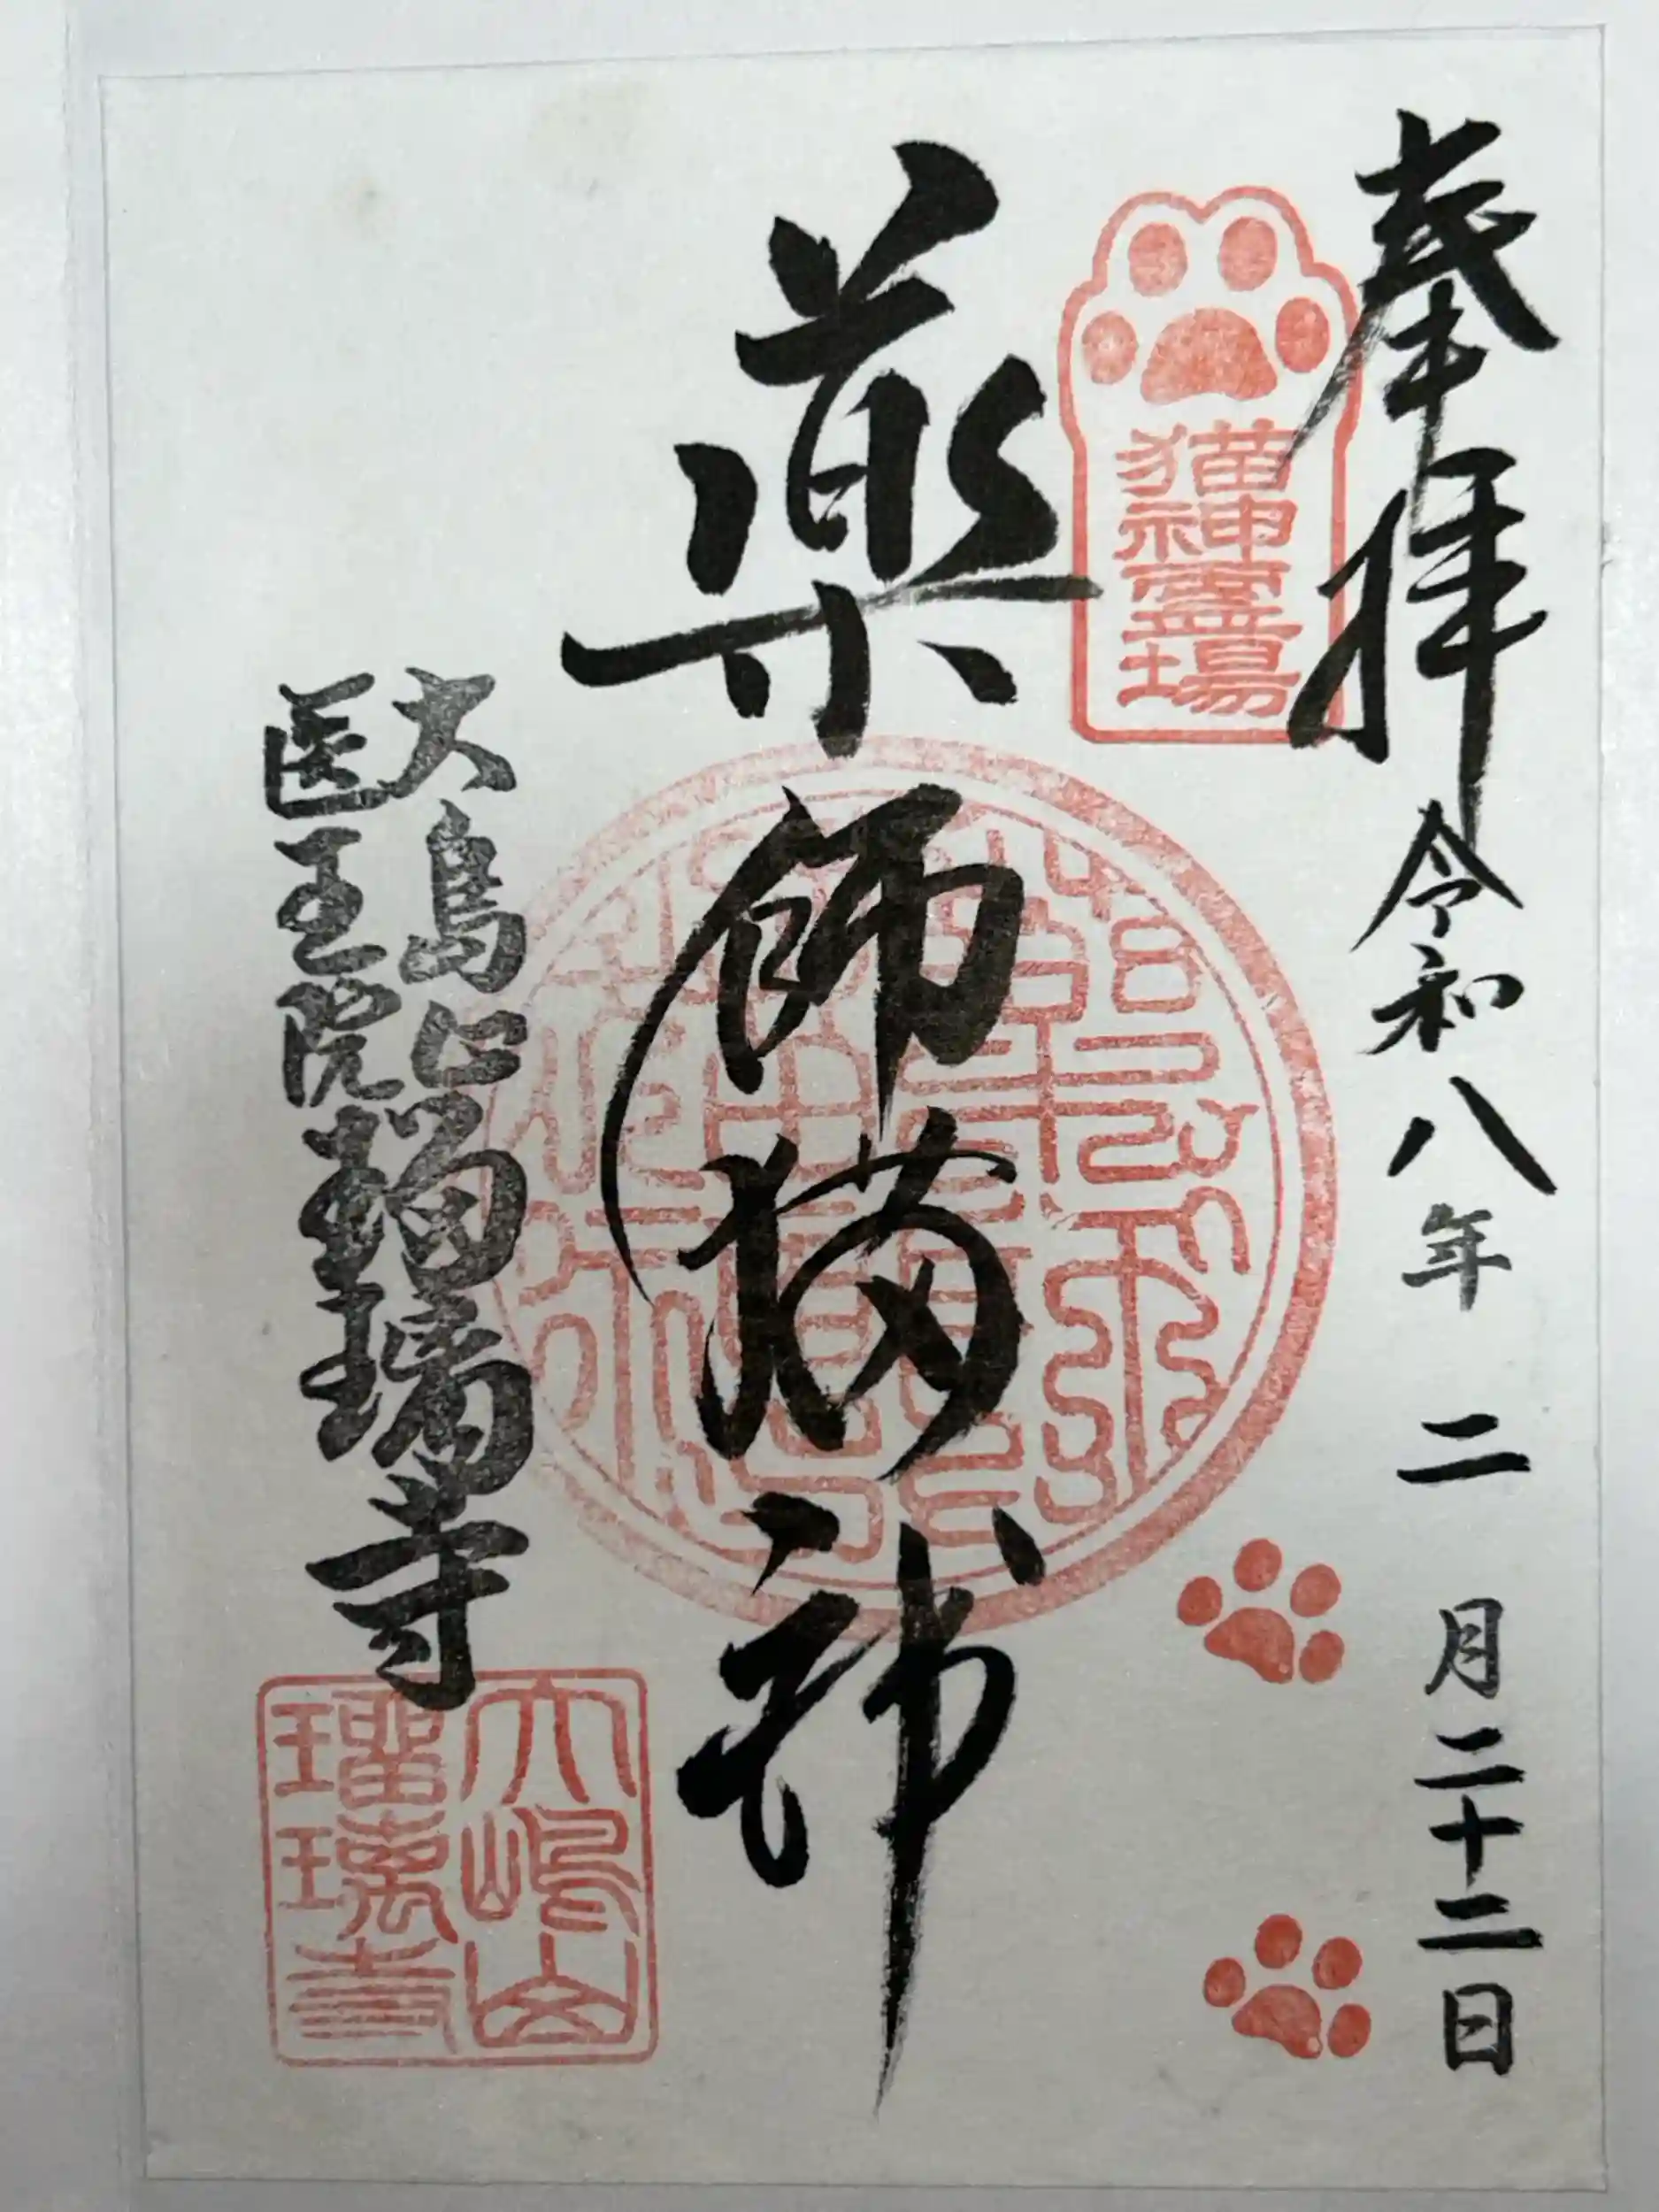 奉拝
令和八年 二月二十二日
猫神霊場
薬師猫神
大島山
医王院
瑠璃寺
大嶋山
瑠璃寺